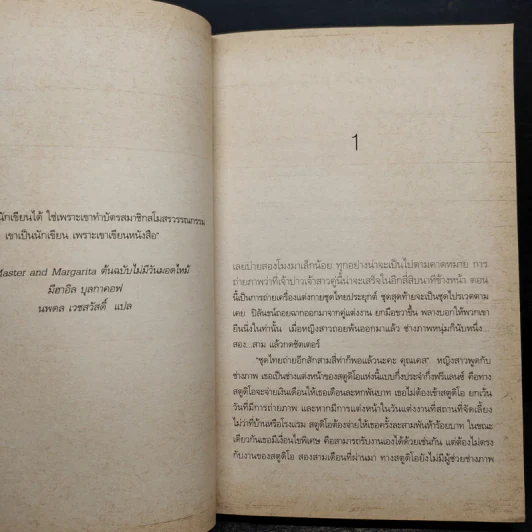 นักเขียนได้ ใช่เพราะเขาทำบัตรสมาชิกสโมสรวรรณกรรม
เขาเป็นนักเขียน เพราะเขาเขียนหนังสือ"
Master and Margarita ต้นฉบับไม่มีวันมอดไหม้
มิฮาอิล บุลกาคอฟ
นพดล เวชสวัสดิ์ แปล
1
เลยบ่ายสองโมงมาเล็กน้อย ทุกอย่างน่าจะเป็นไปตามคาดหมาย การ
ถ่ายภาพว่าที่เจ้าบ่าวเจ้าสาวคู่นี้น่าจะเสร็จในอีกสี่สิบนาทีข้างหน้า ตอน
นี้เป็นการถ่ายเครื่องแต่งกายชุดไทยประยุกต์ ชุดสุดท้ายจะเป็นชุดไปรเวตตาม
เคย ปิลันธน์ถอยฉากออกมาจากคู่แต่งงาน ยกมือขวาขึ้น พลางบอกให้พวกเขา
ยืนนิ่งในท่านั้น เมื่อหญิงสาวถอยพ้นออกมาแล้ว ช่างภาพหนุ่มก็นับหนึ่ง...
สอง...สาม แล้วกดชัตเตอร์
"ชุดไทยถ่ายอีกสักสามสี่ท่าก็พอแล้วนะคะ คุณเคส" หญิงสาวพูดกับ
ช่างภาพ เธอเป็นช่างแต่งหน้าของสตูดิโอแห่งนี้แบบกึ่งประจำกึ่งฟรีแลนซ์ คือทาง
สตูดิโอจะจ่ายเงินเดือนให้เธอเดือนละหกพันบาท เธอไม่ต้องเข้าสตูดิโอ ยกเว้น
วันที่มีการถ่ายภาพ และหากมีการแต่งหน้าในวันแต่งงานที่สถานที่จัดเลี้ยง
ไม่ว่าที่บ้านหรือโรงแรม สตูดิโอต้องจ่ายให้เธอครั้งละสามพันห้าร้อยบาท ในขณะ
เดียวกันเธอมีเงื่อนไขพิเศษ คือสามารถรับงานเองได้ด้วยเช่นกัน แต่ต้องไม่ตรง
กับงานของสตูดิโอ สองสามเดือนที่ผ่านมา ทางสตูดิโอยังไม่มีผู้ช่วยช่างภาพ